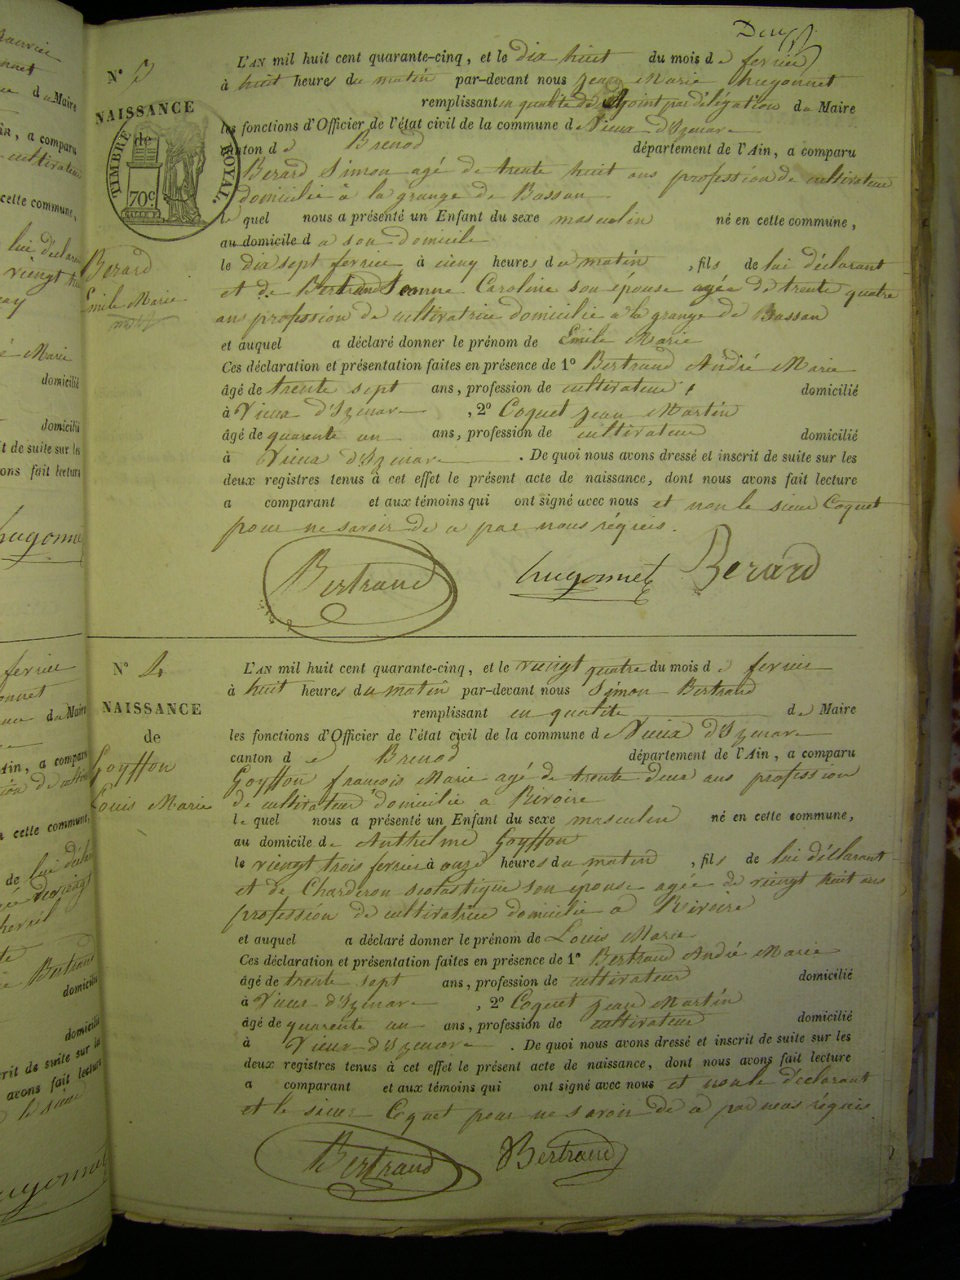 Deux
N° 3
L'AN mil huit cent quarante-cinq, et le dix huit du mois de fevrier
à huit heures du matin par-devant nous Jean Marie hugonnet
NAISSANCE
remplissant en qualité de adjoint par délégation du Maire
les fonctions d'Officier de l'état civil de la commune de Vieux d'Izenave
de
canton de Brenod département de l'Ain, a comparu
TIMBRE ROYAL.
70c
Berard Simon agé de trente huit ans profession de cultivateur
domicilié à la grange de Bassan
le quel nous a présenté un Enfant du sexe masculin né en cette commune,
au domicile d a son domicile
Berard
Emile Marie
le dix sept fevrier à cinq heures du matin, fils de lui déclarant
et de Bertrand Jeanne Caroline son épouse agée de trente quatre
ans profession de cultivatrice domicilié à la grange de Bassan
et auquel a déclaré donner le prénom de Emile Marie
Ces déclaration et présentation faites en présence de 1° Bertrand André Marie
âgé de trente sept ans, profession de cultivateur, domicilié
à Vieux d'Izenave, 2° Coquet jean Martin
âgé de quarente un ans, profession de cultivateur domicilié
à Vieux d'Izenave. De quoi nous avons dressé et inscrit de suite sur les
deux registres tenus à cet effet le présent acte de naissance, dont nous avons fait lecture
a comparant et aux témoins qui ont signé avec nous et non le sieur Coquet
pour ne savoir de ce par nous réquis.
Bertrand hugonnet Berard
N° 4
L'AN mil huit cent quarante-cinq, et le vieingt quatre du mois de fevrier
à huit heures du matin par-devant nous Simon Bertrand
NAISSANCE
remplissant en qualité de Maire
de
les fonctions d'Officier de l'état civil de la commune de Vieux d'Izenave
canton de Brenod département de l'Ain, a comparu
Goyffon
Louis Marie
Goyffon françois Marie agé de trente deux ans profession
de cultivateur domicilié a Rivoire
le quel nous a présenté un Enfant du sexe masculin né en cette commune,
au domicile de Anthelme Goyffon
le vieingt trois fevrier à onze heures du matin, fils de lui déclarant
et de Charderon scolastique son épouse agée de vieingt huit ans
profession de cultivatrice domicilié a Rivoire
et auquel a déclaré donner le prénom de Louis Marie
Ces déclaration et présentation faites en présence de 1° Bertrand André Marie
âgé de trente sept ans, profession de cultivateur domicilié
à Vieux d'Izenave, 2° Coquet jean Martin
âgé de quarente un ans, profession de cultivateur domicilié
à Vieux d'Izenave. De quoi nous avons dressé et inscrit de suite sur les
deux registres tenus à cet effet le présent acte de naissance, dont nous avons fait lecture
a comparant et aux témoins qui ont signé avec nous et non le déclarant
et le sieur Coquet pour ne savoir de ce par nous réquis
Bertrand Bertrand